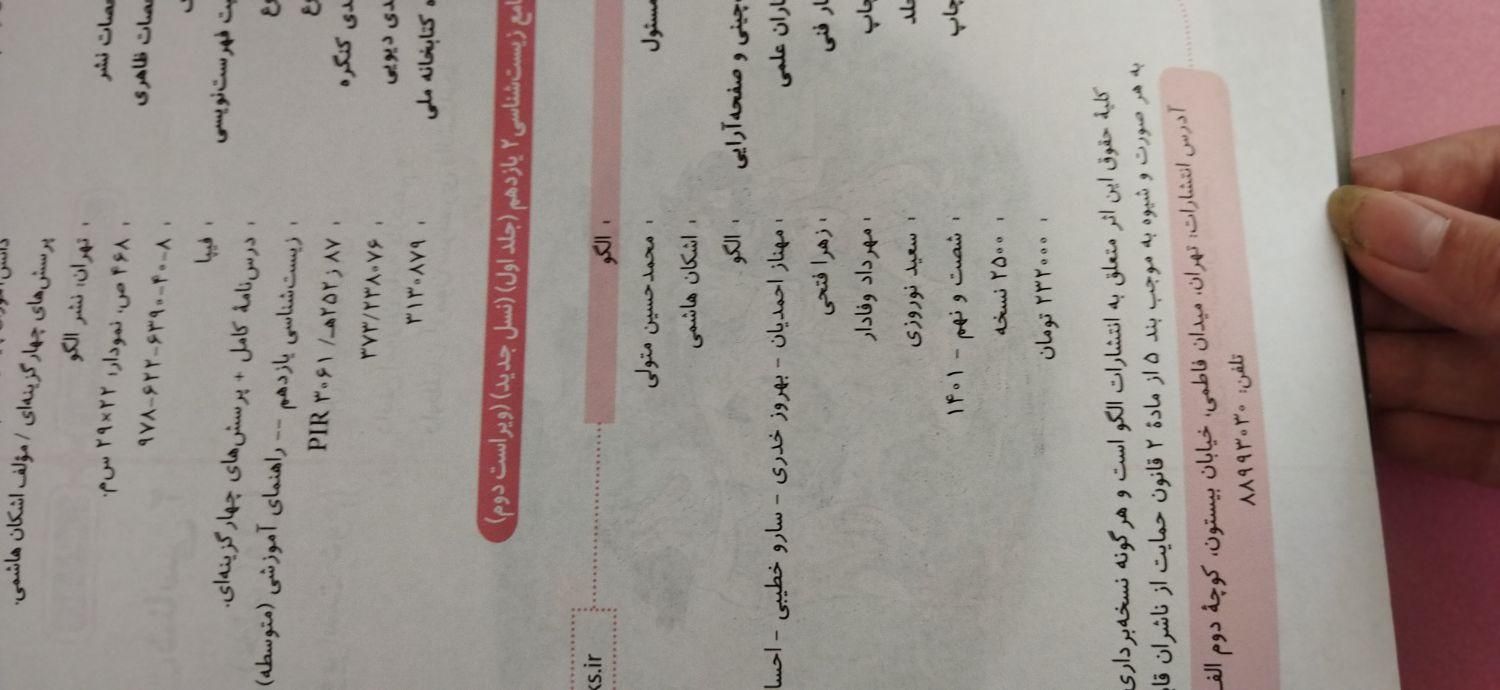 دانش‌آموزان
پرسش‌های چهارگزینه‌ای / مؤلف اشکان هاشمی.
مات نشر : تهران: نشر الگو
مات ظاهری : ۴۶۸ ص، نمودار؛ ۲۲×۲۹ س‌م.
: ۹۷۸-۶۲۲-۶۳۹۰-۴۰-۸
ت فهرست‌نویسی : فیپا
: درس‌نامهٔ کامل + پرسش‌های چهارگزینه‌ای.
: زیست‌شناسی یازدهم -- راهنمای آموزشی (متوسطه)
دی کنگره : ۸۷ ز۲۵۲هـ/ ۳۰۶۱ PIR
دی دیویی : ۳۷۳/۲۳۸۰۷۶
ه کتابخانه ملی : ۳۱۳۰۸۷۹
امع زیست‌شناسی ۲ یازدهم (جلد اول) (نسل جدید) (ویراست دوم)
: الگو
ks.ir
مسئول : محمدحسین متولی
: اشکان هاشمی
چینی و صفحه‌آرایی : الگو
اران علمی : مهناز احمدیان - بهروز خدری - سارو خطیبی - احسا
ار فنی : زهرا فتحی
چاپ : مهرداد وفادار
جلد : سعید نوروزی
چاپ : شصت و نهم - ۱۴۰۱
: ۲۵۰۰ نسخه
: ۲۳۲۰۰۰ تومان
کلیهٔ حقوق این اثر متعلق به انتشارات الگو است و هرگونه نسخه‌برداری
به هر صورت و شیوه به موجب بند ۵ از مادهٔ ۲ قانون حمایت از ناشران قاب
آدرس انتشارات: تهران، میدان فاطمی، خیابان بیستون، کوچهٔ دوم الف
تلفن: ۸۸۹۹۳۰۳۰